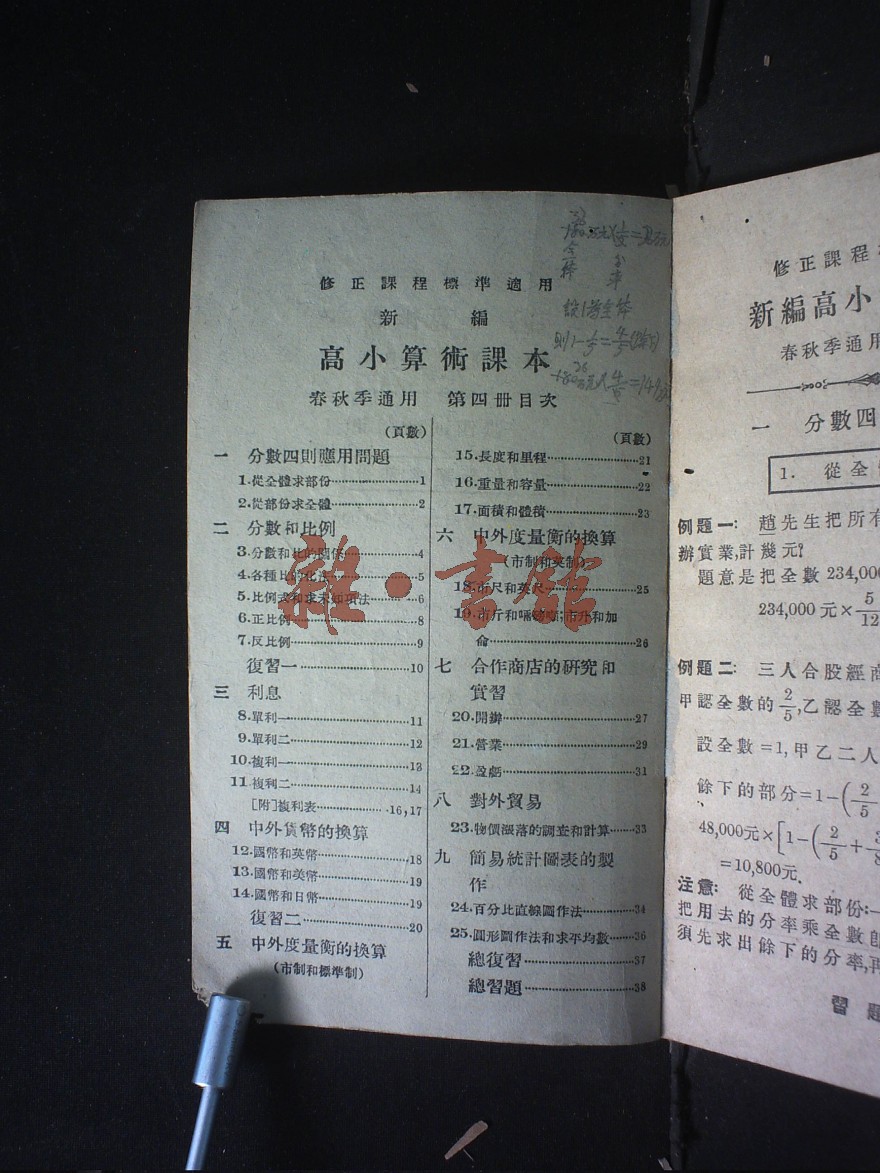 修正課程標準適用
新編
高小算術課本
春秋季通用 第四冊目次
(頁數)
一 分數四則應用問題
1.從全體求部份……1
2.從部份求全體……2
二 分數和比例
3.分數和比的關係……4
4.各種比的化法……5
5.比例式和求未知項法……6
6.正比例……8
7.反比例……9
復習一……10
三 利息
8.單利一……11
9.單利二……12
10.複利一……13
11.複利二……14
[附]複利表……16,17
四 中外貨幣的換算
12.國幣和英幣……18
13.國幣和美幣……19
14.國幣和日幣……19
復習二……20
五 中外度量衡的換算
(市制和標準制)
(頁數)
15.長度和里程……21
16.重量和容量……22
17.面積和體積……23
六 中外度量衡的換算
(市制和英制)
18.市尺和英尺……25
19.市斤和磅;市升和加
侖……26
七 合作商店的研究和
實習
20.開辦……27
21.營業……29
22.盈虧……31
八 對外貿易
23.物價漲落的調查和計算……33
九 簡易統計圖表的製
作
24.百分比直線圖作法……34
25.圓形圖作法和求平均數……36
總復習……37
總習題……38
雜·書館
修正課程
新編高小
春秋季通用
一 分數四
1. 從全
例題一: 趙先生把所有
辦實業,計幾元?
題意是把全數 234,000
234,000元×5/12
例題二: 三人合股經商
甲認全數的2/5,乙認全數
設全數=1,甲乙二人
餘下的部分=1-(2/5
48,000元×[1-(2/5+3/8
=10,800元.
注意: 從全體求部份:一
把用去的分率乘全數即
須先求出餘下的分率,再
習題